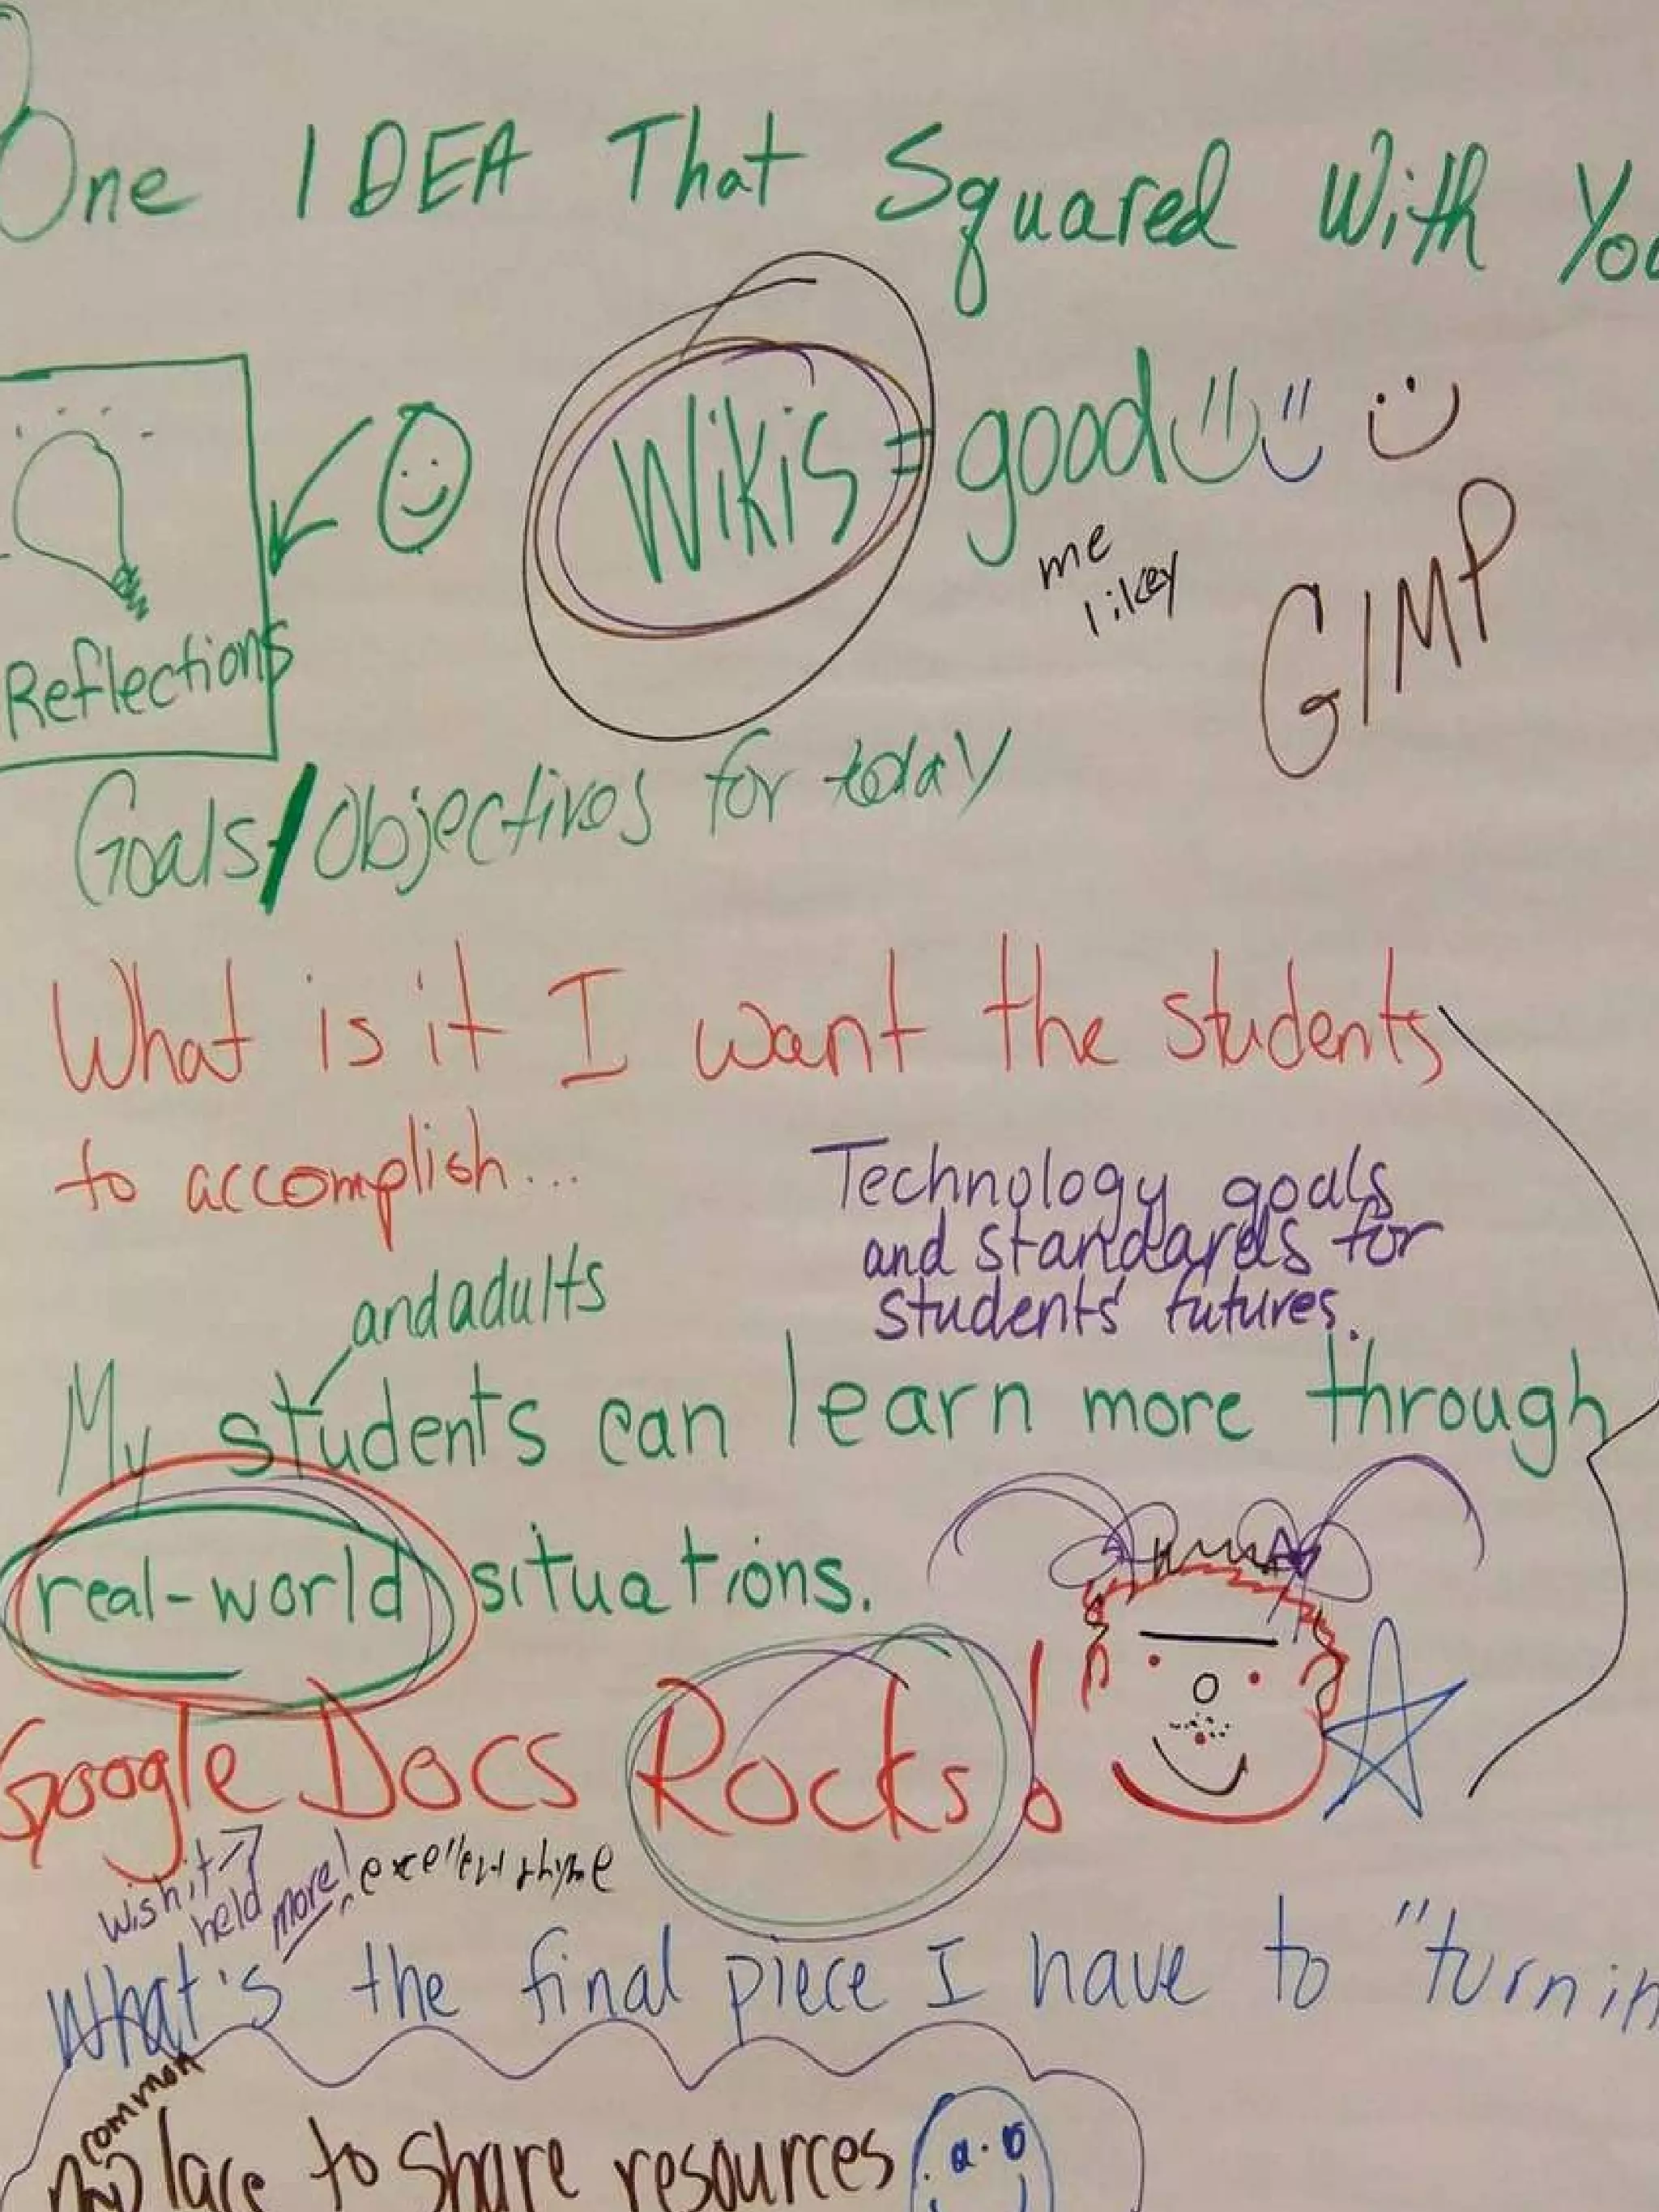 One IDEA That Squared With You
Wikis = good
me
likey
GIMP
Reflections
Goals/Objectives for today
What is it I want the students
to accomplish...
Technology goals
and standards for
students' futures.
and adults
My students can learn more through
real-world situations.
Google Docs Rocks!
wish it
held more!
excellent rhyme
What's the final piece I have to "turn in
common
place to share resources